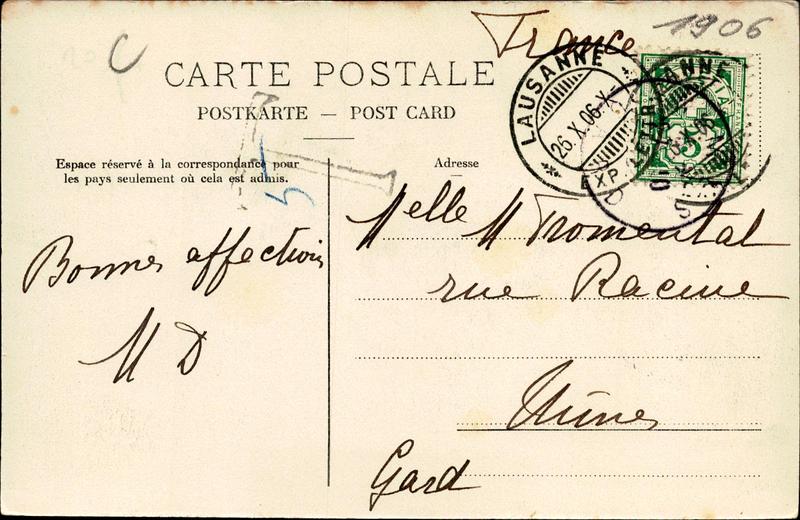 France
1906
C
CARTE POSTALE
POSTKARTE — POST CARD
Espace réservé à la correspondance pour
les pays seulement où cela est admis.
Adresse
LAUSANNE
26.X.06-X-
EXP. LETTR.
T
5
Melle M Fromental
rue Racine
Nîmes
Gard
Bonnes affections
M D